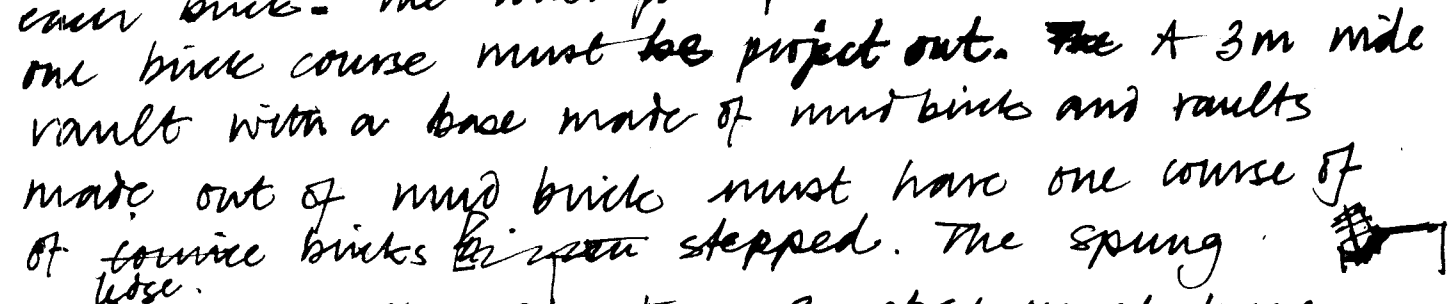 each brick. The
one brick course must be project out. The A 3m wide
vault with a base made of mud brick and vaults
made out of mud brick must have one course of
of cornice bricks stepped. The spung
ledge.